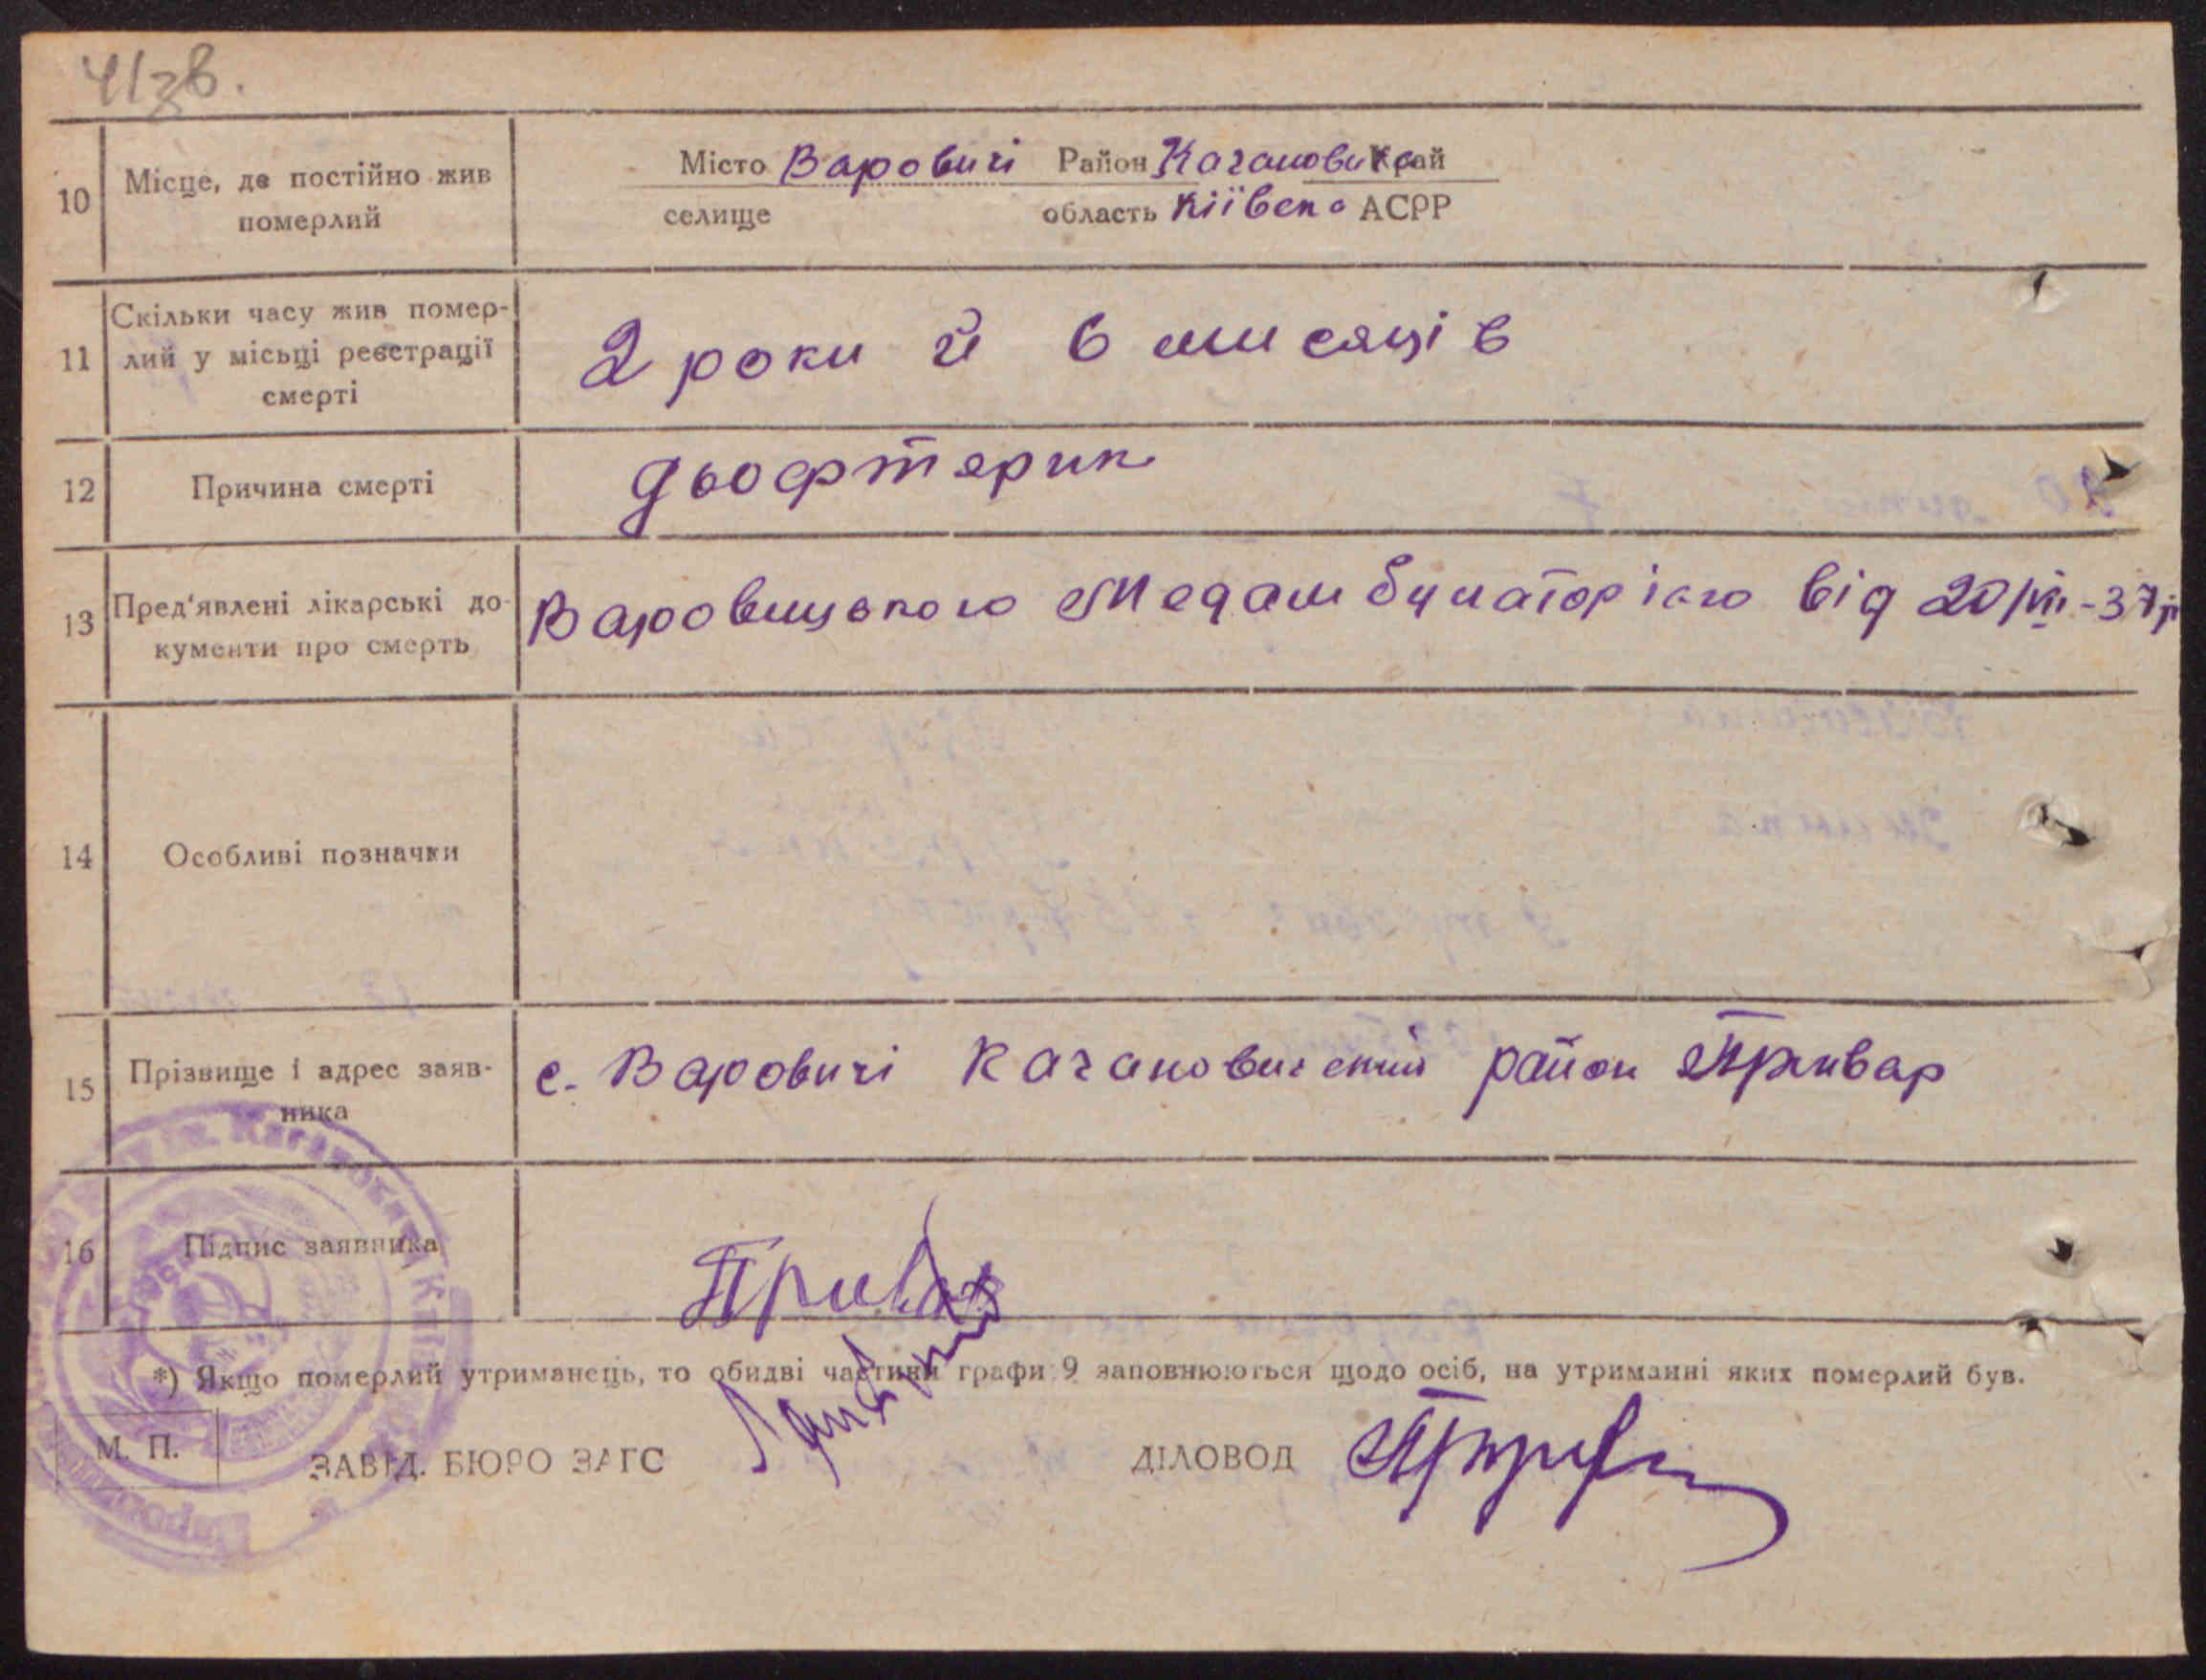 10 Місце, де постійно жив померлий
Місто Варовичі Район Кагановича Край
селище область Київська АСРР
11 Скільки часу жив помер-
лий у місьці реєстрації
смерті
2 роки й 6 мисяців
12 Причина смерті
дьофтерик
13 Пред'явлені лікарські до-
кументи про смерть
Варовицького Медамбулаторією від 20/VII-37р
14 Особливі позначки
15 Прізвище і адрес заяв-
ника
с. Варовичі Кагановичский район Привар
16 Підпис заявника
*) Якщо померлий утриманець, то обидві частини графи 9 заповнюються щодо осіб, на утриманні яких померлий був.
М. П.
ЗАВІД. БЮРО ЗАГС
ДІЛОВОД